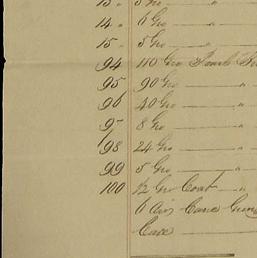 13 " 5 Gro — "
14 " 6 Gro — "
15 " 5 Gro — "
94 110 Gro
95 90 Gro — "
96 40 Gro — "
97 8 Gro — "
98 24 Gro — "
99 5 Gro — "
100 ½ Gro Coat — "
6
Case —